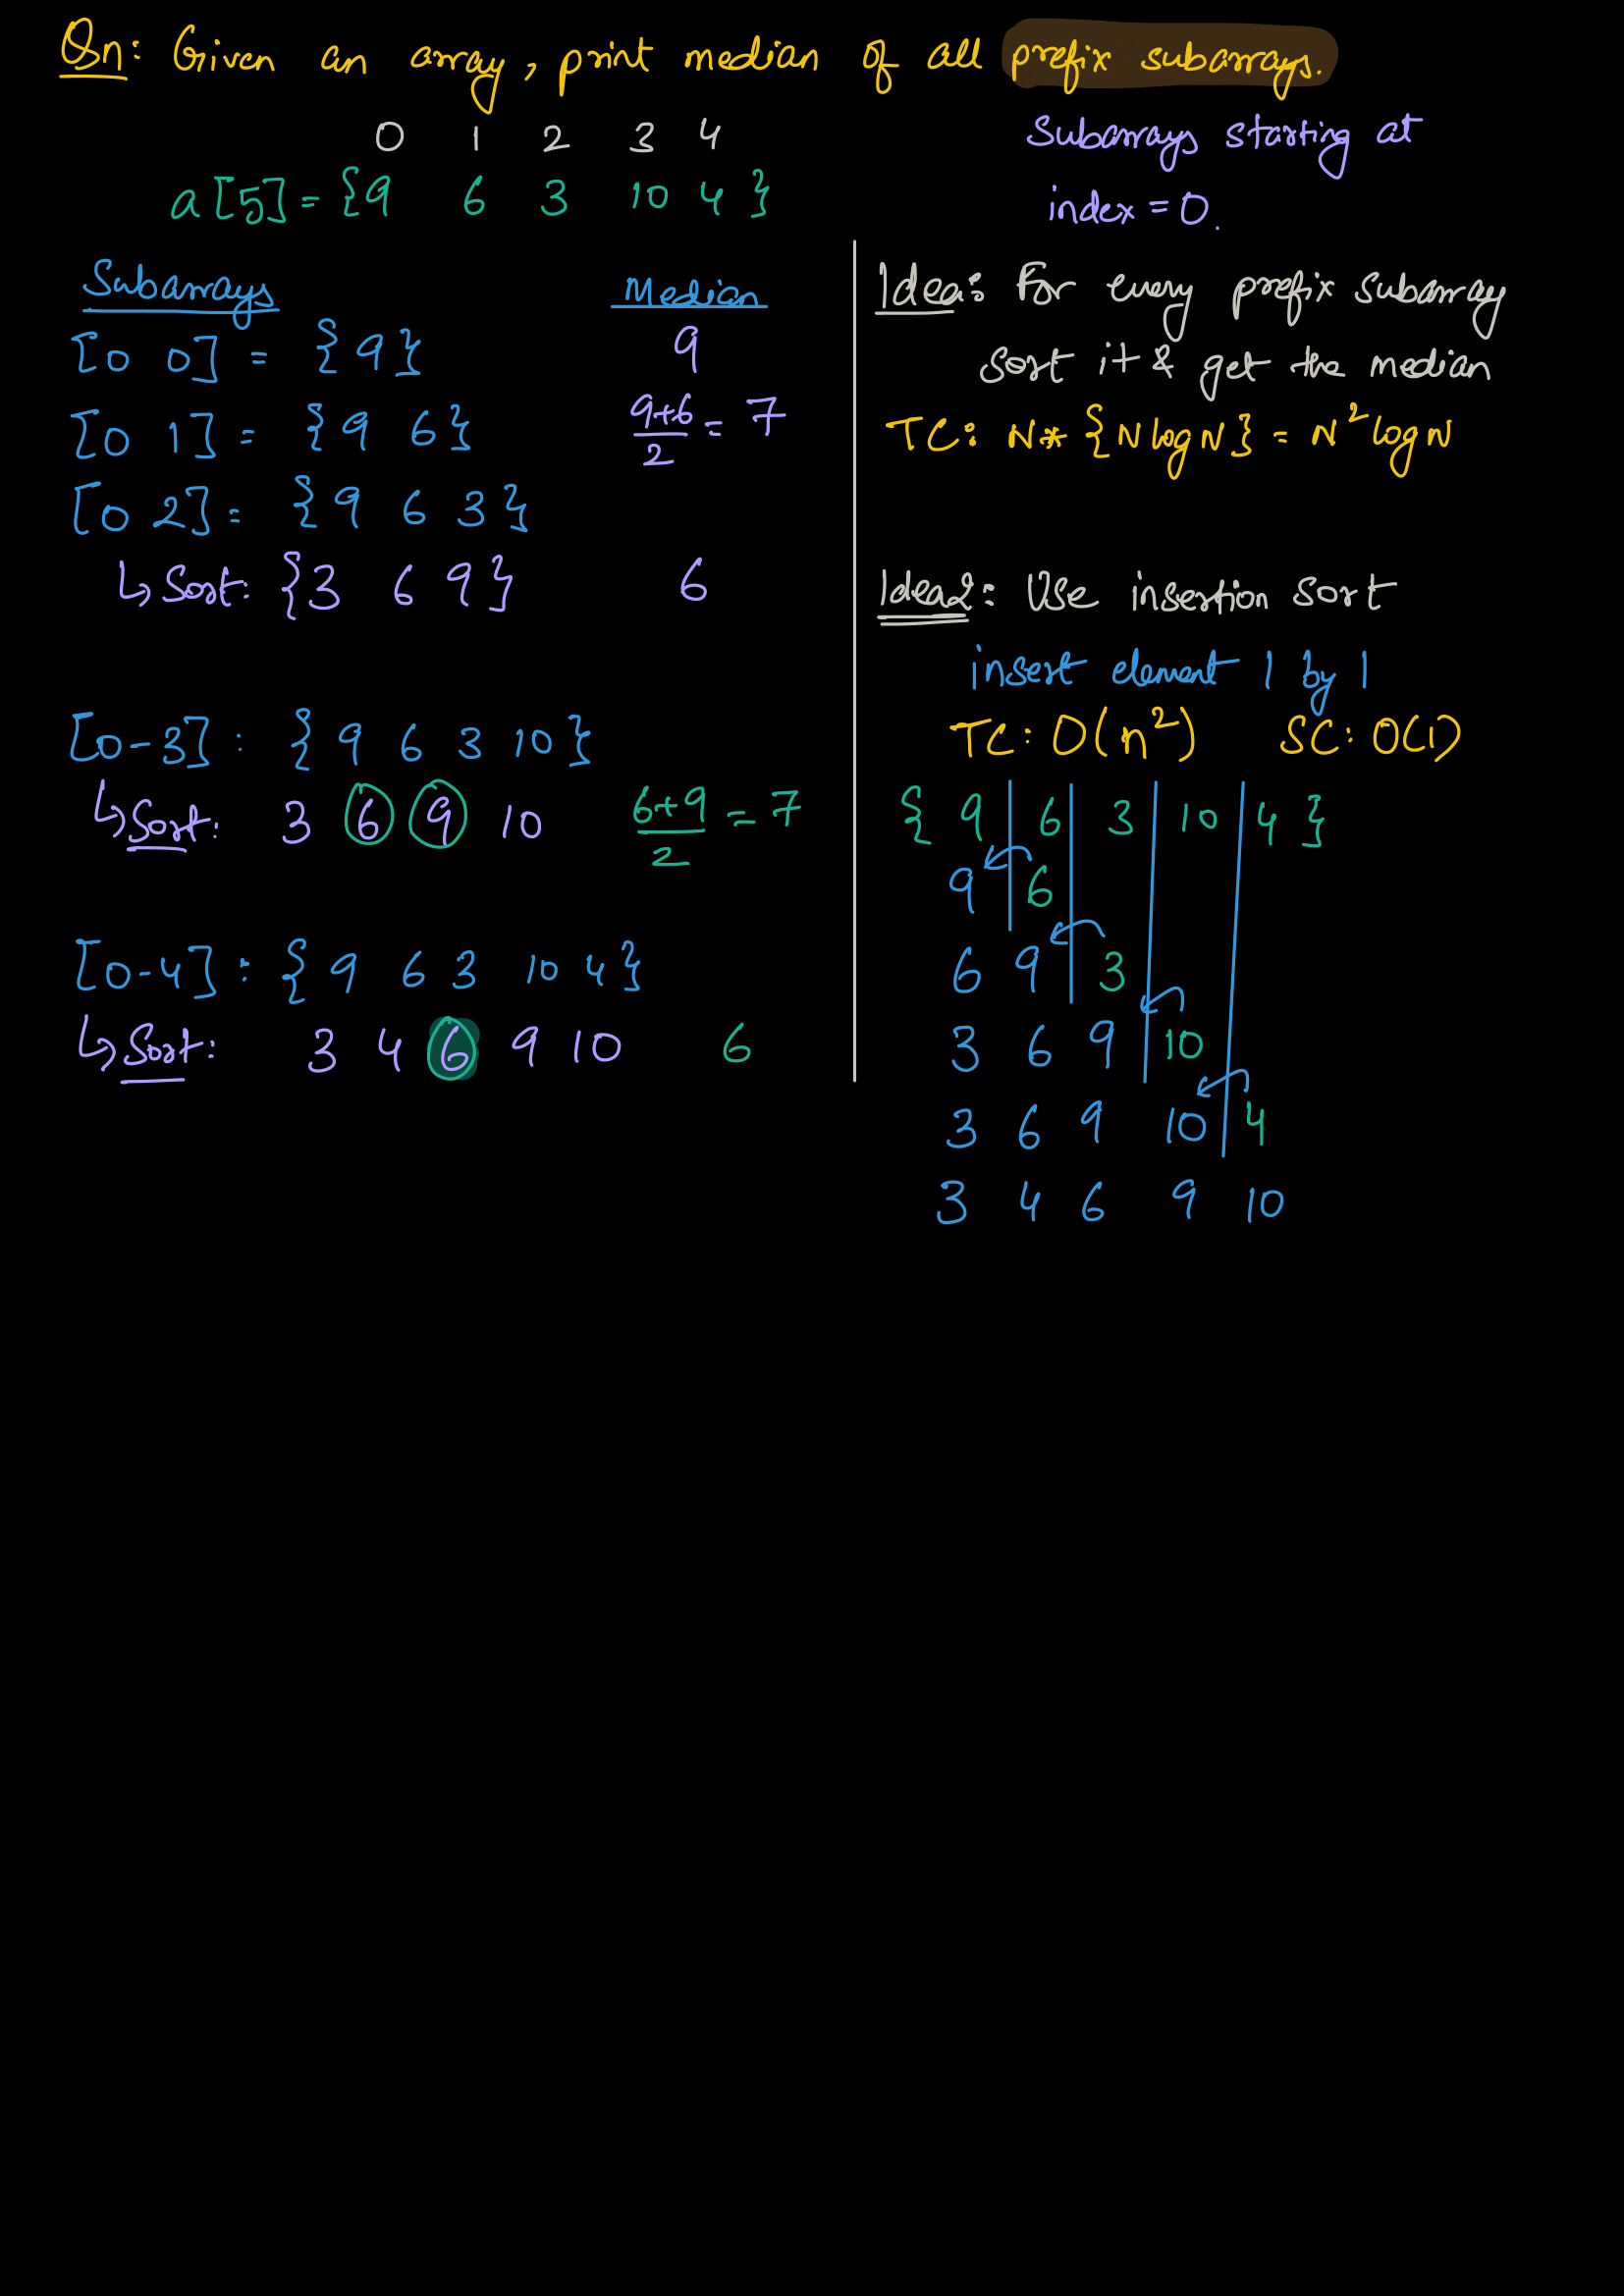 Qn: Given an array, print median of all prefix subarrays.
0 1 2 3 4
a[5] = {9 6 3 10 4}
Subarrays starting at
index = 0.
Subarrays Median
[0 0] = {9} 9
[0 1] = {9 6} (9+6)/2 = 7
[0 2] = {9 6 3}
↳ Sort: {3 6 9} 6
[0-3] : {9 6 3 10}
↳ Sort: 3 6 9 10 (6+9)/2 = 7
[0-4] : {9 6 3 10 4}
↳ Sort: 3 4 6 9 10 6
Idea: For every prefix subarray
sort it & get the median
TC: N * {N log N} = N² log N
Idea2: Use insertion sort
insert element 1 by 1
TC: O(n²) SC: O(1)
{9 6 3 10 4}
9 6
6 9 3
3 6 9 10
3 6 9 10 4
3 4 6 9 10